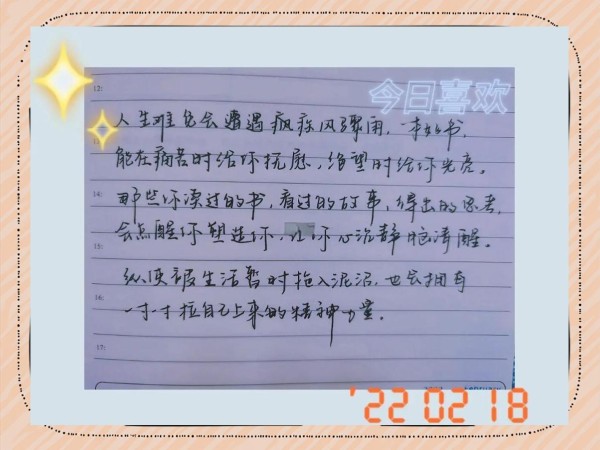 今日喜欢
12:
人生难免会遭遇疯疾风骤雨，一本好书，
13:
能在痛苦时给你抚慰，绝望时给你光亮。
14:
那些你读过的书，看过的故事，得出的思考，
会点醒你塑造你，让你心沉静脑清醒。
15:
纵使被生活暂时拖入泥沼，也会拥有
16:
一寸一寸拉自己上来的精神力量。
17:
'22 02 18